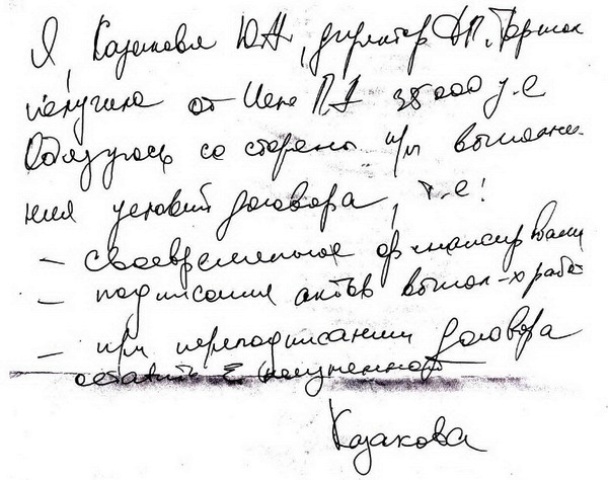 Я, Казакова Ю.А., директор ДП
получила от П.1 38000 у.е
Обязуюсь со стороны выполне-
ния условий договора, т.е:
– своевременное финансирование
– подписание актов выпол-х работ
– при переподписании договора
оставить
Казакова